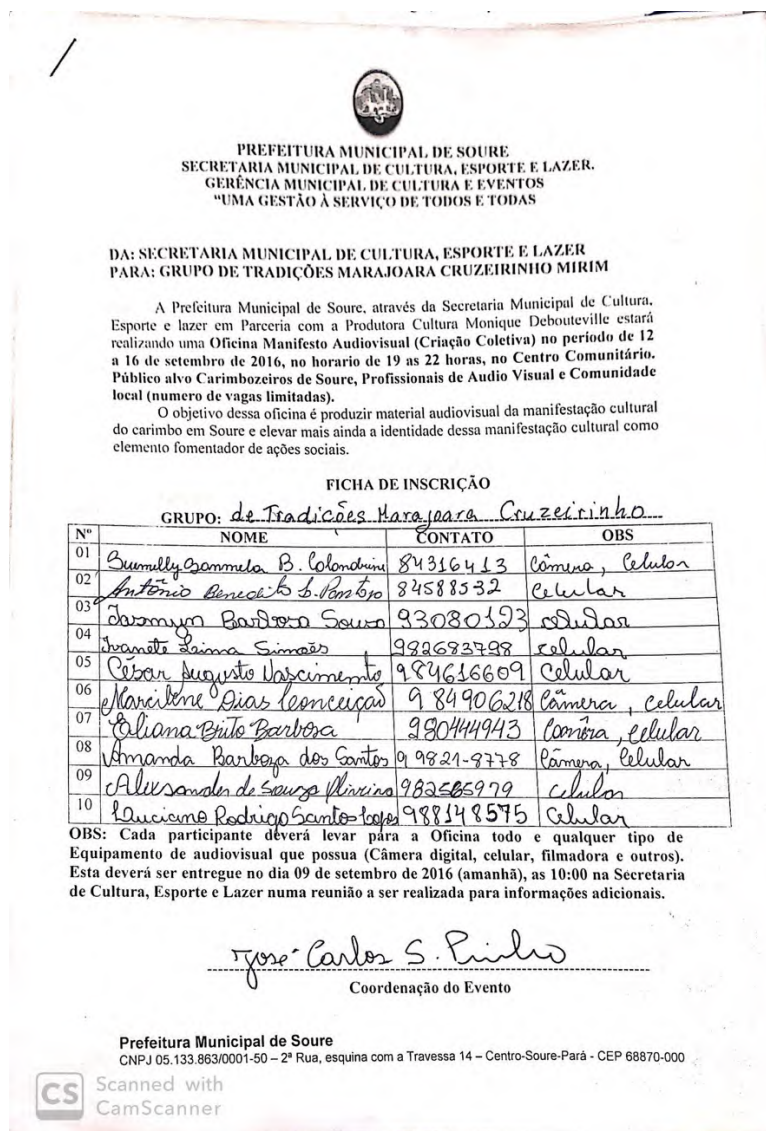 PREFEITURA MUNICIPAL DE SOURE
SECRETARIA MUNICIPAL DE CULTURA, ESPORTE E LAZER.
GERÊNCIA MUNICIPAL DE CULTURA E EVENTOS
"UMA GESTÃO À SERVIÇO DE TODOS E TODAS
DA: SECRETARIA MUNICIPAL DE CULTURA, ESPORTE E LAZER
PARA: GRUPO DE TRADIÇÕES MARAJOARA CRUZEIRINHO MIRIM
A Prefeitura Municipal de Soure, através da Secretaria Municipal de Cultura,
Esporte e lazer em Parceria com a Produtora Cultura Monique Debouteville estará
realizando uma Oficina Manifesto Audiovisual (Criação Coletiva) no período de 12
a 16 de setembro de 2016, no horario de 19 as 22 horas, no Centro Comunitário.
Público alvo Carimbozeiros de Soure, Profissionais de Audio Visual e Comunidade
local (numero de vagas limitadas).
O objetivo dessa oficina é produzir material audiovisual da manifestação cultural
do carimbo em Soure e elevar mais ainda a identidade dessa manifestação cultural como
elemento fomentador de ações sociais.
FICHA DE INSCRIÇÃO
GRUPO: de Tradições Marajoara Cruzeirinho
Nº NOME CONTATO OBS
01 B. 84316413 Câmera, Celular
02 Antônio Benedito S. Pantoja 84588532 Celular
03 Barbosa Souza 93080123 celular
04 Ivanete Laima Simões 982683798 celular
05 César Augusto Nascimento 984616609 Celular
06 Marcilene Dias Conceição 9 84906218 Câmera, celular
07 Eliana Brito Barbosa 980444943 Camêra, celular
08 Amanda Barboza dos Santos 9 9821-8778 Câmera, Celular
09 Alexsander de Souza Oliveira 982565979 celular
10 Luciano Rodrigo Santos Lopes 988148575 Celular
OBS: Cada participante deverá levar para a Oficina todo e qualquer tipo de
Equipamento de audiovisual que possua (Câmera digital, celular, filmadora e outros).
Esta deverá ser entregue no dia 09 de setembro de 2016 (amanhã), as 10:00 na Secretaria
de Cultura, Esporte e Lazer numa reunião a ser realizada para informações adicionais.
José Carlos S. Pinho
Coordenação do Evento
Prefeitura Municipal de Soure
CNPJ 05.133.863/0001-50 – 2ª Rua, esquina com a Travessa 14 – Centro-Soure-Pará - CEP 68870-000
CS Scanned with
CamScanner